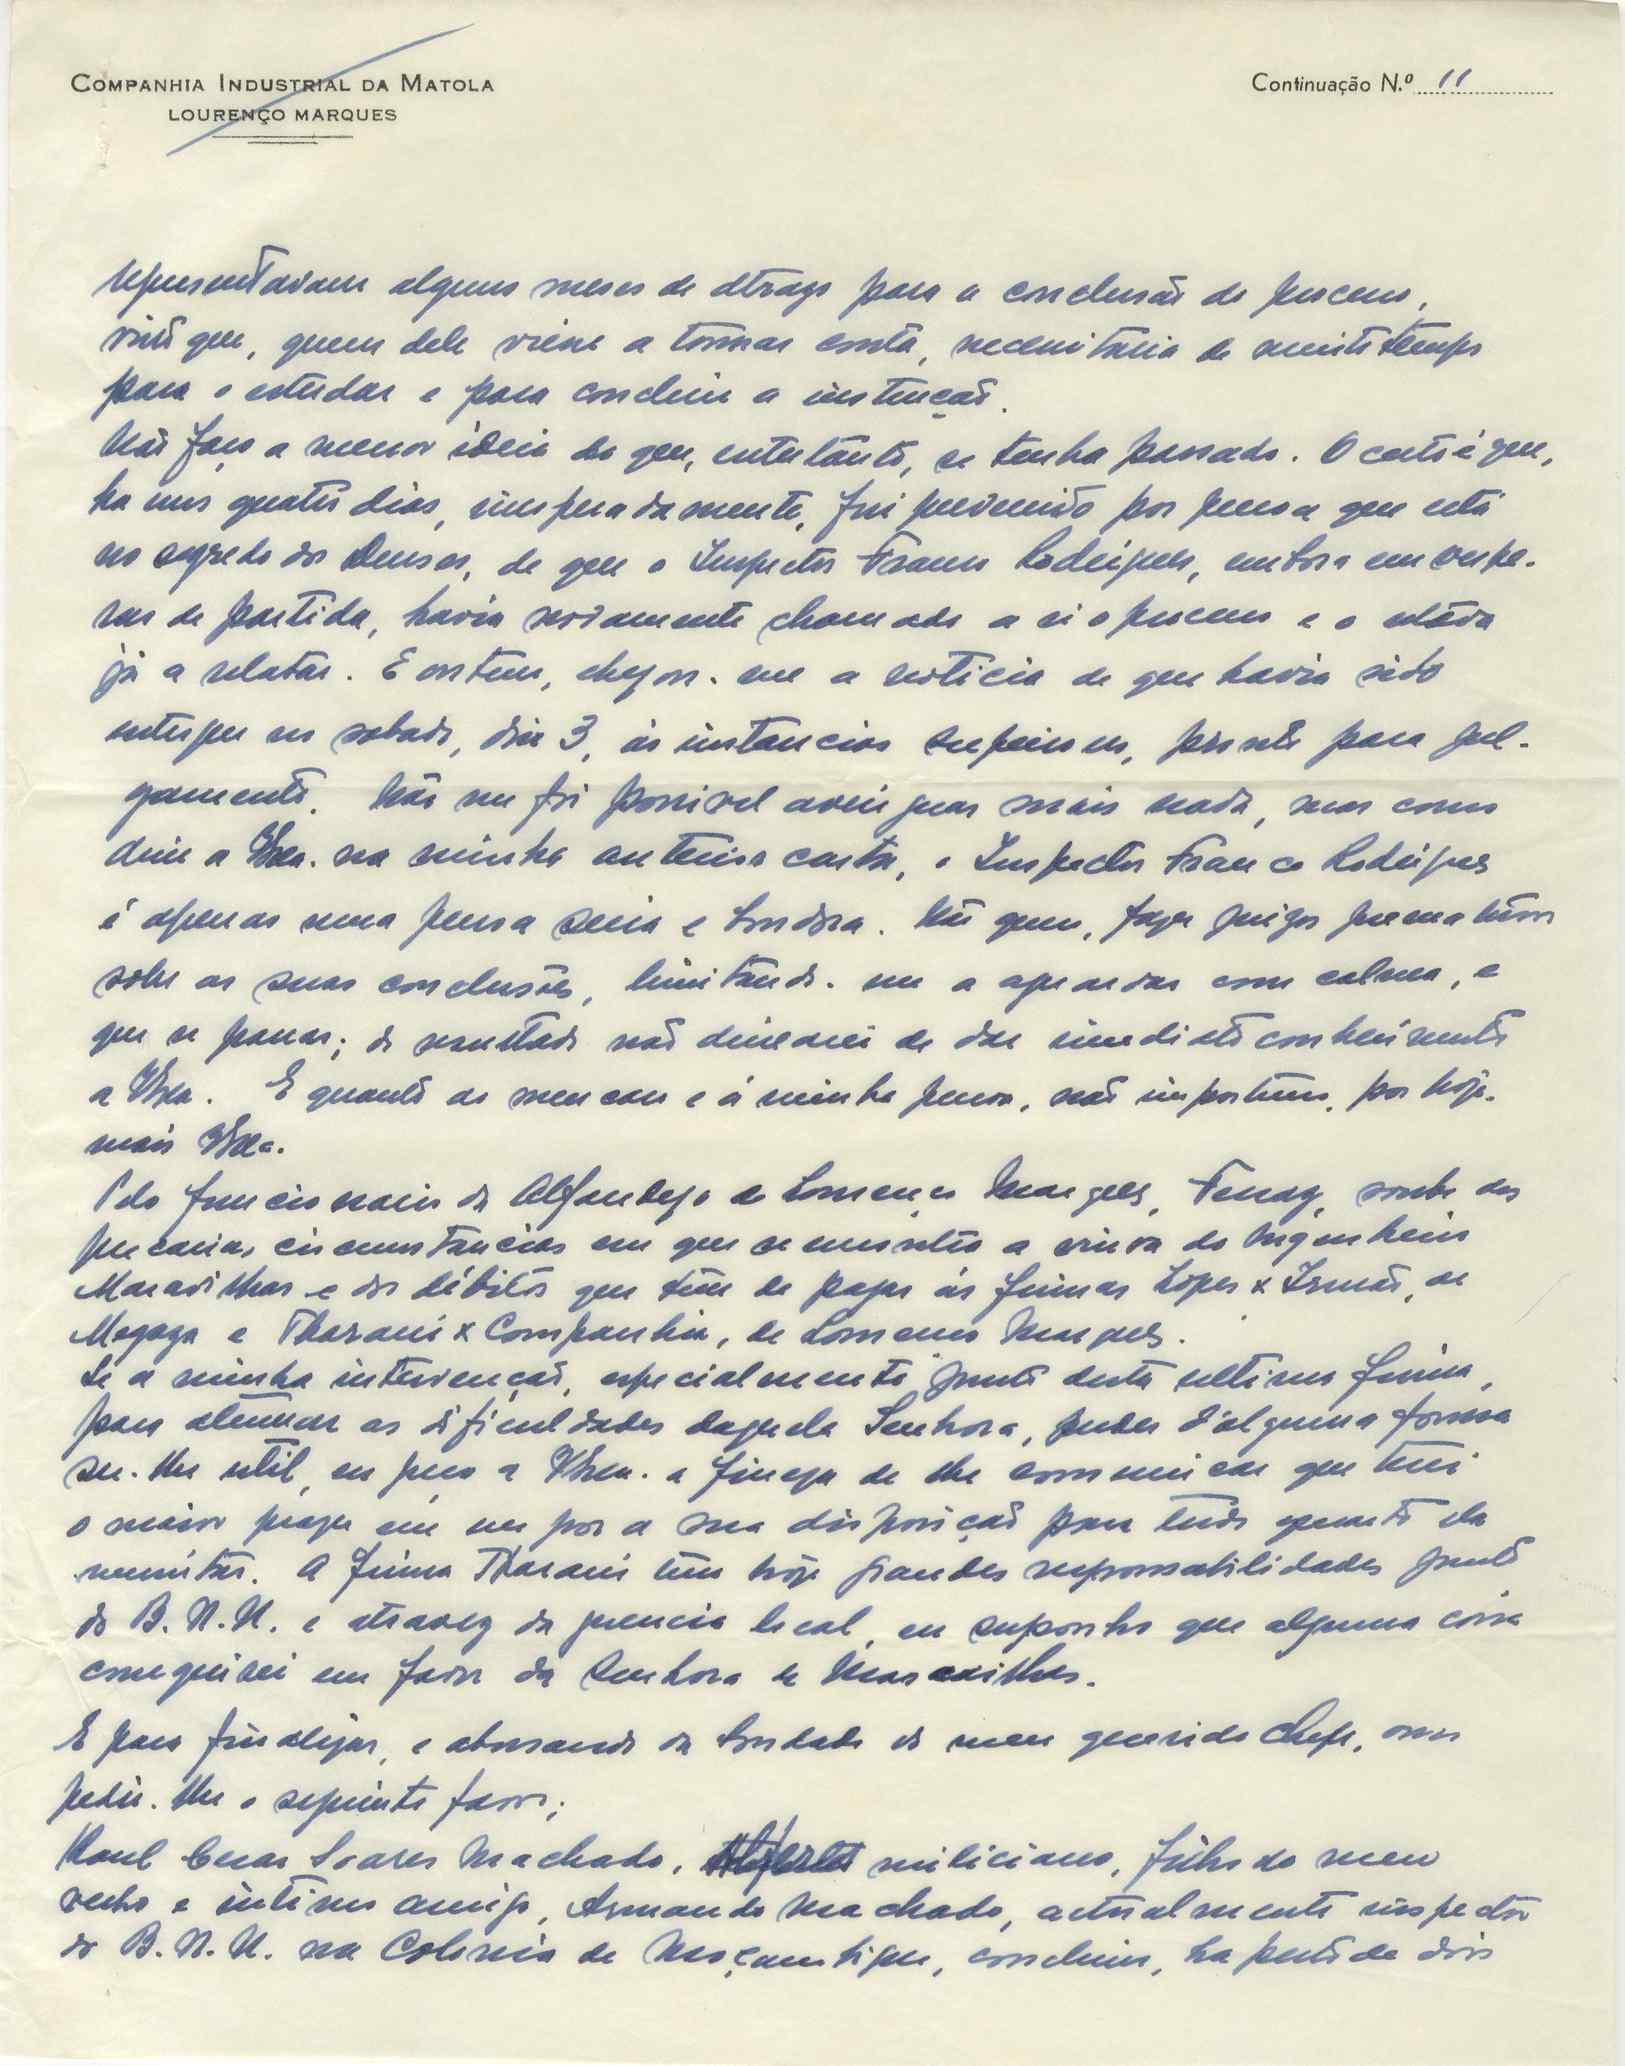 COMPANHIA INDUSTRIAL DA MATOLA
LOURENÇO MARQUES
Continuação N.º 11
representavam alguns meses de atrazo para a conclusão do processo,
visto que, quem dele viesse a tomar conta, necessitaria de muito tempo
para o estudar e para concluir a instrução.
Não faço a menor ideia do que, entretanto, se tenha passado. O certo é que,
ha uns quatro dias, inesperadamente, fui prevenido por pessoa que está
no segredo dos Deuses, de que o Inspector Franco Rodrigues, embora em vespe-
ras de partida, havia novamente chamado a si o processo e o estava
já a relatar. E ontem, chegou-me a noticia de que havia sido
entregue no sabado, dia 3, ás instancias superiores, pronto para jul-
gamento. Não me foi possivel averiguar mais nada, mas como
disse a VExa. na minha anterior carta, o Inspector Franco Rodrigues
é apenas uma pessoa seria e bondosa. Não quero, fazer juizos prematuros
sobre as suas conclusões, limitando-me a aguardar com calma, o
que se passar; do resultado não deixarei de dar imediato conhecimento
a VExa. E quanto ao meu caso e á minha pessoa, não importuno, por hoje,
mais VExa.
Pelo funcionario da Alfandega de Lourenço Marques, Ferraz, soube das
precarias circunstancias em que se encontra a viuva do Engenheiro
Maravilhas e dos débitos que tem de pagar ás firmas Lopes & Irmão, de
Magaza e Tharani & Companhia, de Lourenço Marques.
Se a minha intervenção, especialmente junto desta ultima firma,
para atenuar as dificuldades daquela Senhora, puder d'alguma forma
ser-lhe util, eu peço a VExa. a fineza de lhe comunicar que terei
o maior prazer em me por a sua disposição para tudo quanto ela
necessitar. A firma Tharani tem hoje grandes responsabilidades junto
do B.N.U. e atravez da gerencia local, eu suponho que alguma coisa
conseguirei em favor da Senhora de Maravilhas.
E para finalizar, e abusando da bondade do meu querido Chefe, ouso
pedir-lhe o seguinte favor;
Raul Cesar Soares Machado, miliciano, filho do meu
velho e intimo amigo, Armando Machado, actualmente inspector
do B.N.U. na Colonia de Moçambique, concluiu, ha perto de dois